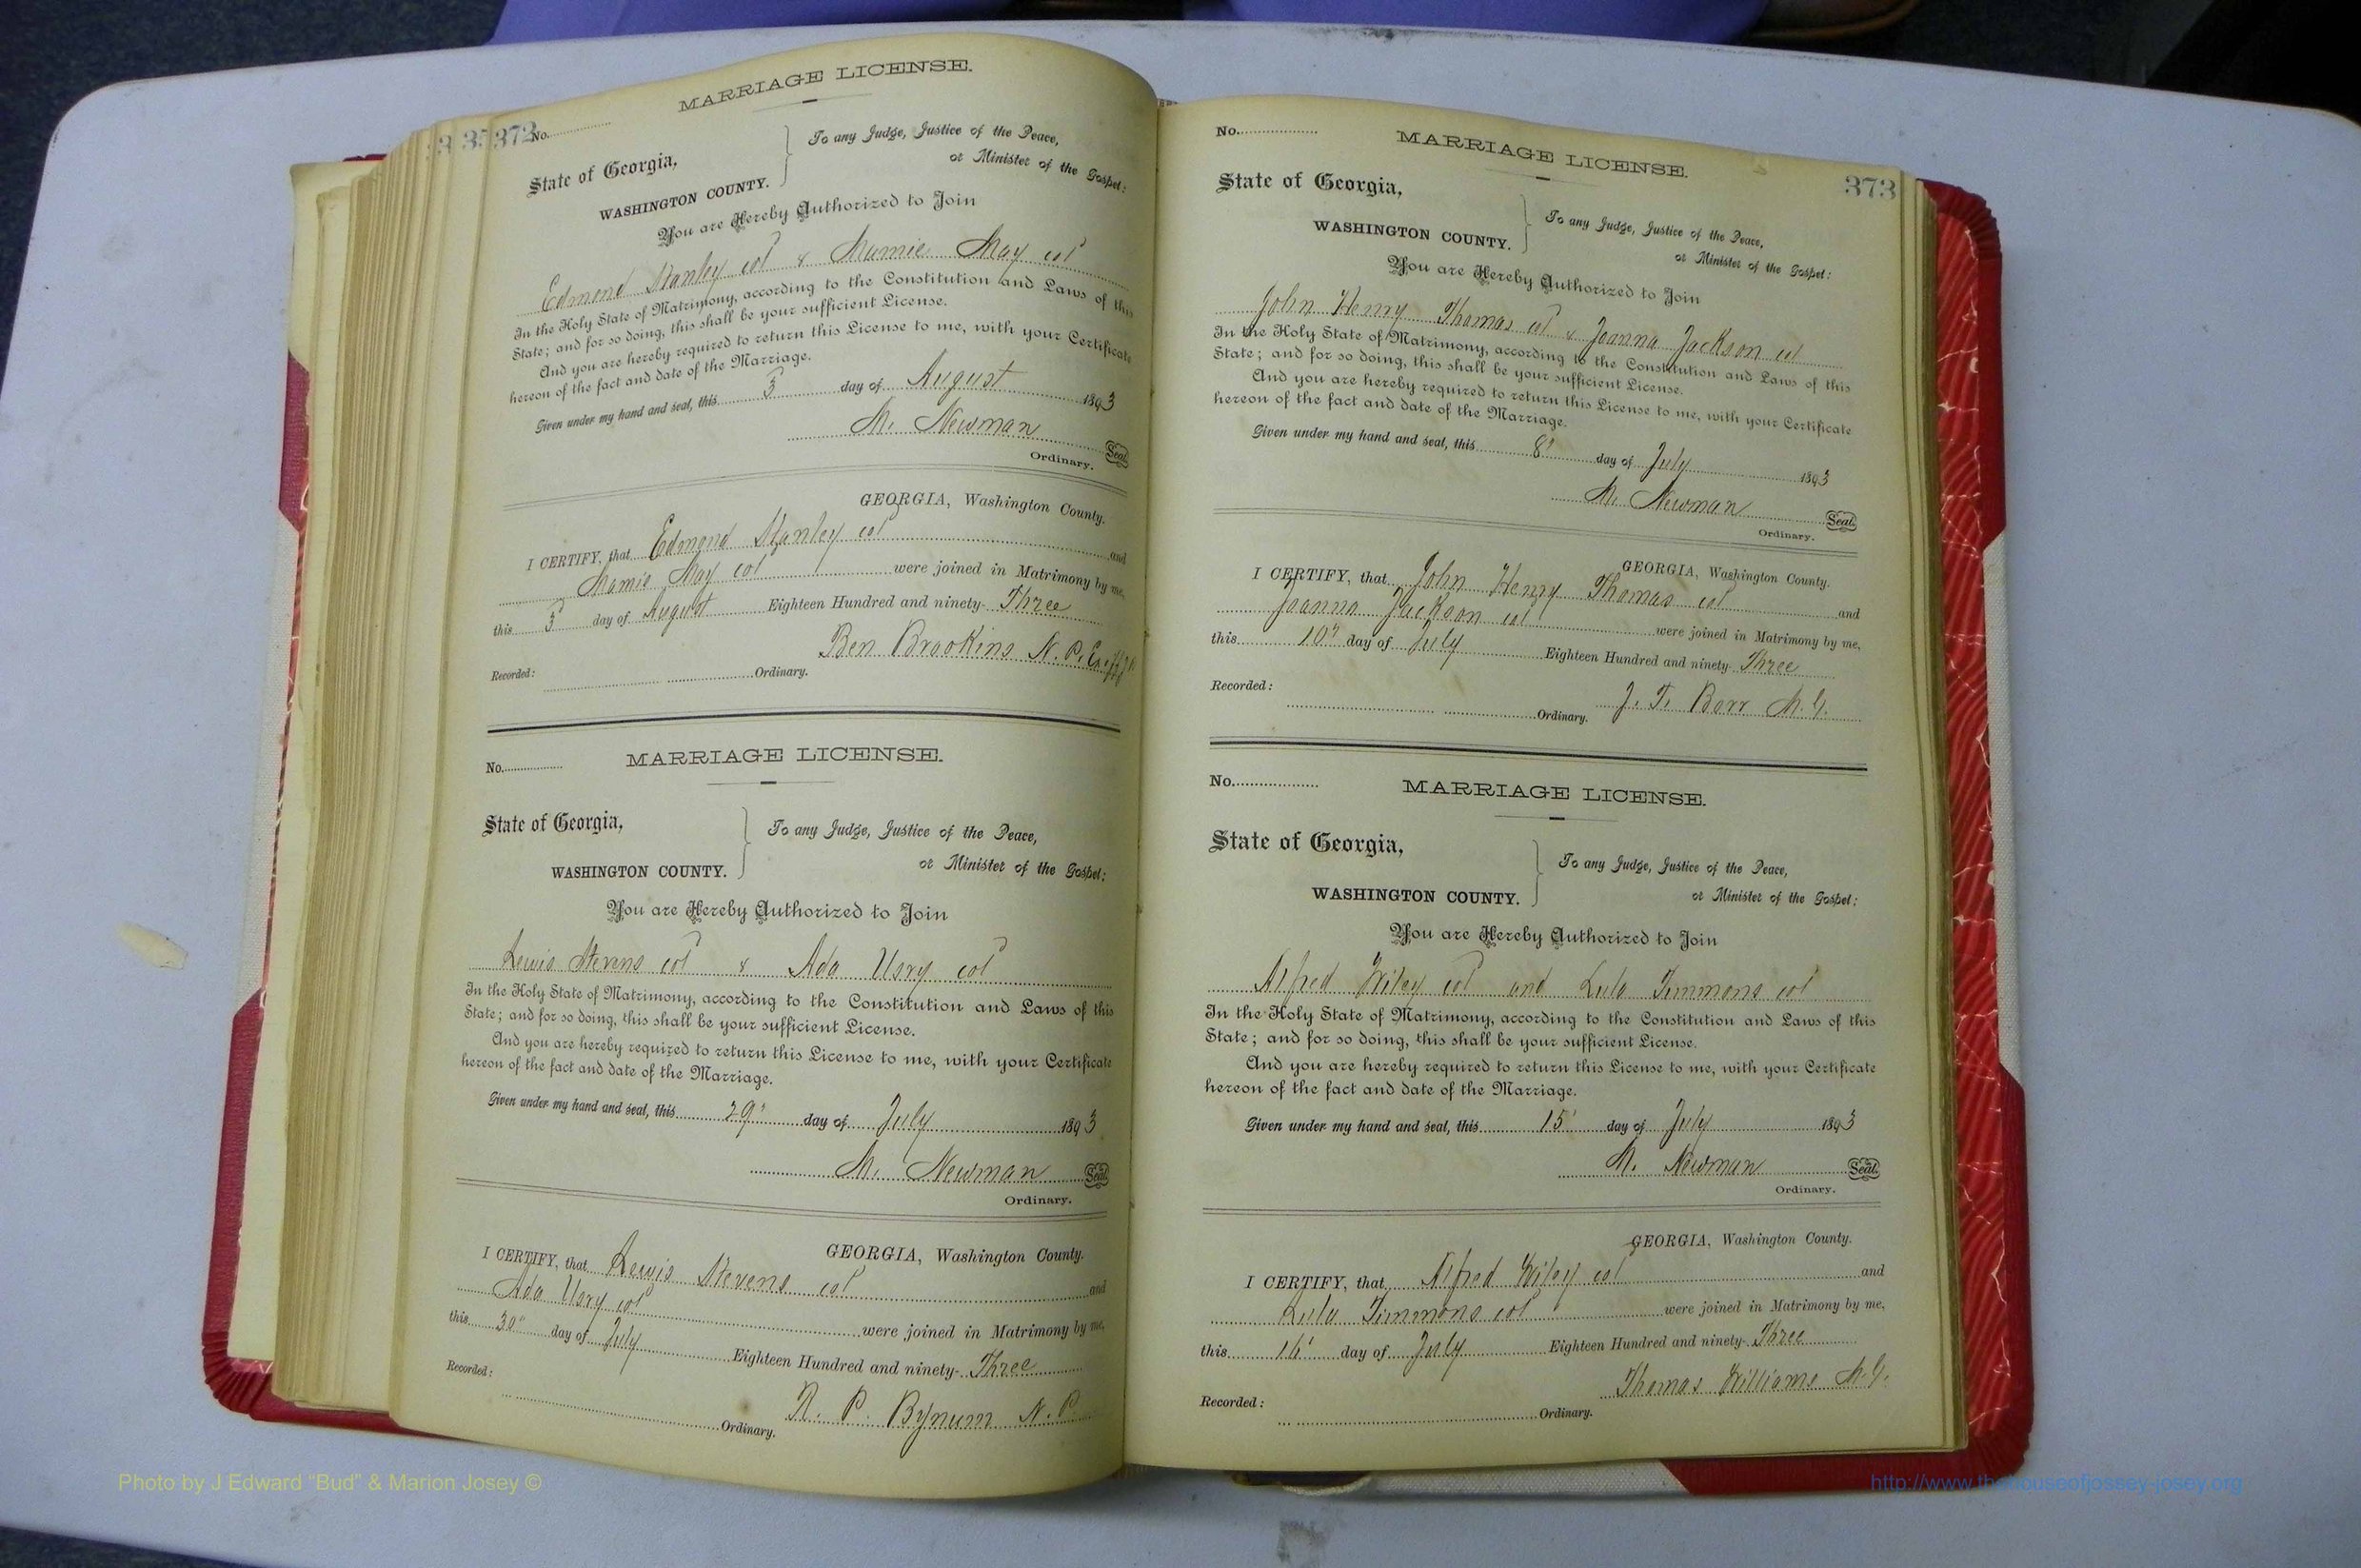 372
No.
MARRIAGE LICENSE.
State of Georgia,
WASHINGTON COUNTY.
To any Judge, Justice of the Peace,
or Minister of the Gospel:
You are Hereby Authorized to Join
Edmond Stanley col & Mamie May col
In the Holy State of Matrimony, according to the Constitution and Laws of this
State; and for so doing, this shall be your sufficient License.
And you are hereby required to return this License to me, with your Certificate
hereon of the fact and date of the Marriage.
Given under my hand and seal, this 3 day of August 1893
M. Newman Seal.
Ordinary.
GEORGIA, Washington County.
I CERTIFY, that Edmond Stanley col and
Mamie May col were joined in Matrimony by me,
this 3 day of August Eighteen Hundred and ninety- Three
Ben Brookins N. P.
Recorded: Ordinary.
No.
MARRIAGE LICENSE.
State of Georgia,
WASHINGTON COUNTY.
To any Judge, Justice of the Peace,
or Minister of the Gospel:
You are Hereby Authorized to Join
Lewis Stevens col & Ada Usry col
In the Holy State of Matrimony, according to the Constitution and Laws of this
State; and for so doing, this shall be your sufficient License.
And you are hereby required to return this License to me, with your Certificate
hereon of the fact and date of the Marriage.
Given under my hand and seal, this 29" day of July 1893
M. Newman Seal.
Ordinary.
GEORGIA, Washington County.
I CERTIFY, that Lewis Stevens col and
Ada Usry col were joined in Matrimony by me,
this 30" day of July Eighteen Hundred and ninety- Three
R. P. Bynum N. P.
Recorded: Ordinary.
No.
MARRIAGE LICENSE.
373
State of Georgia,
WASHINGTON COUNTY.
To any Judge, Justice of the Peace,
or Minister of the Gospel:
You are Hereby Authorized to Join
John Henry Thomas col & Joanna Jackson col
In the Holy State of Matrimony, according to the Constitution and Laws of this
State; and for so doing, this shall be your sufficient License.
And you are hereby required to return this License to me, with your Certificate
hereon of the fact and date of the Marriage.
Given under my hand and seal, this 8" day of July 1893
M. Newman Seal.
Ordinary.
GEORGIA, Washington County.
I CERTIFY, that John Henry Thomas col and
Joanna Jackson col were joined in Matrimony by me,
this 10" day of July Eighteen Hundred and ninety- Three
J. T. Barr M. G.
Recorded: Ordinary.
No.
MARRIAGE LICENSE.
State of Georgia,
WASHINGTON COUNTY.
To any Judge, Justice of the Peace,
or Minister of the Gospel:
You are Hereby Authorized to Join
Alfred Wiley col and Lula Timmons col
In the Holy State of Matrimony, according to the Constitution and Laws of this
State; and for so doing, this shall be your sufficient License.
And you are hereby required to return this License to me, with your Certificate
hereon of the fact and date of the Marriage.
Given under my hand and seal, this 15' day of July 1893
M. Newman Seal.
Ordinary.
GEORGIA, Washington County.
I CERTIFY, that Alfred Wiley col and
Lula Timmons col were joined in Matrimony by me,
this 16' day of July Eighteen Hundred and ninety- Three
Thomas Williams M. G.
Recorded: Ordinary.
Photo by J Edward "Bud" & Marion Josey ©
http://www.thehouseofjossey-josey.org